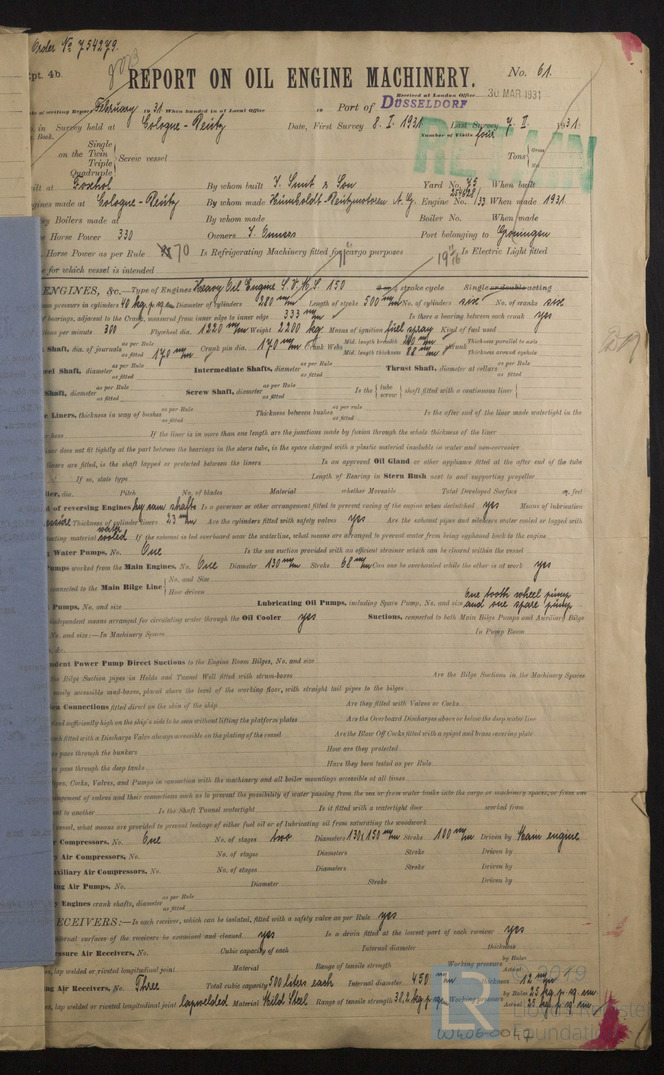 Order No 754279.
Rpt. 4b
REPORT ON OIL ENGINE MACHINERY.
No. 61.
Received at London Office 30 MAR 1931
Date of writing Report February 1931 When handed in at Local Office 19 Port of DÜSSELDORF
in Survey held at Cologne-Deutz Date, First Survey 8. I. 1931 Last Survey 7. II. 1931.
Book. Number of Visits four
RETAIN
Single
on the Twin
Triple
Quadruple
Screw vessel
Tons Gross
Net
Built at Foxhol By whom built J. Smit & Son Yard No. When built
Engines made at Cologne-Deutz By whom made Humboldt-Deutzmotoren A.G. Engine No. When made 1931.
Boilers made at By whom made Boiler No. When made
Horse Power 330 Owners Port belonging to Groningen
Horse Power as per Rule 70 Is Refrigerating Machinery fitted for cargo purposes Is Electric Light fitted
for which vessel is intended
ENGINES, &c.—Type of Engines Heavy Oil Engine stroke cycle Single or double acting
pressure in cylinders Diameter of cylinders 280 mm Length of stroke 500 mm No. of cylinders six No. of cranks six
bearings, adjacent to the Crank, measured from inner edge to inner edge 333 mm Is there a bearing between each crank yes
per minute 300 Flywheel dia. 1220 mm Weight 2200 kg Means of ignition fuel spray Kind of fuel used
Shaft, dia. of journals as per Rule
as fitted 170 mm Crank pin dia. 170 mm Crank Webs Mid. length breadth
Mid. length thickness 88 mm shrunk Thickness parallel to axis
Thickness around eyehole
Shaft, diameter as per Rule
as fitted Intermediate Shafts, diameter as per Rule
as fitted Thrust Shaft, diameter at collars as per Rule
as fitted
Shaft, diameter as per Rule
as fitted Screw Shaft, diameter as per Rule
as fitted Is the tube
screw shaft fitted with a continuous liner
Liners, thickness in way of bushes as per Rule
as fitted Thickness between bushes as per Rule
as fitted Is the after end of the liner made watertight in the
boss If the liner is in more than one length are the junctions made by fusion through the whole thickness of the liner
does not fit tightly at the part between the bearings in the stern tube, is the space charged with a plastic material insoluble in water and non-corrosive
liners are fitted, is the shaft lapped or protected between the liners Is an approved Oil Gland or other appliance fitted at the after end of the tube
If so, state type Length of Bearing in Stern Bush next to and supporting propeller
dia. Pitch No. of blades Material whether Moveable Total Developed Surface sq. feet
of reversing Engines by cam shaft Is a governor or other arrangement fitted to prevent racing of the engine when declutched yes Means of lubrication
Thickness of cylinder liners 23 mm Are the cylinders fitted with safety valves yes Are the exhaust pipes and silencers water cooled or lagged with
conducting material water cooled If the exhaust is led overboard near the waterline, what means are arranged to prevent water from being syphoned back to the engine
Water Pumps, No. One Is the sea suction provided with an efficient strainer which can be cleared within the vessel
Pumps worked from the Main Engines, No. One Diameter 130 mm Stroke 68 mm Can one be overhauled while the other is at work yes
connected to the Main Bilge Line No. and Size
How driven
Pumps, No. and size Lubricating Oil Pumps, including Spare Pump, No. and size one tooth wheel pump
and one spare pump
independent means arranged for circulating water through the Oil Cooler yes Suctions, connected to both Main Bilge Pumps and Auxiliary Bilge
No. and size:—In Machinery Spaces In Pump Room
&c.
Power Pump Direct Suctions to the Engine Room Bilges, No. and size
the Bilge Suction pipes in Holds and Tunnel Well fitted with strum-boxes Are the Bilge Suctions in the Machinery Spaces
easily accessible mud-boxes, placed above the level of the working floor, with straight tail pipes to the bilges
Connections fitted direct on the skin of the ship Are they fitted with Valves or Cocks
fixed sufficiently high on the ship's side to be seen without lifting the platform plates Are the Overboard Discharges above or below the deep water line
each fitted with a Discharge Valve always accessible on the plating of the vessel Are the Blow Off Cocks fitted with a spigot and brass covering plate
pass through the bunkers How are they protected
pass through the deep tanks Have they been tested as per Rule
Pipes, Cocks, Valves, and Pumps in connection with the machinery and all boiler mountings accessible at all times
arrangement of valves and their connections such as to prevent the possibility of water passing from the sea or from water tanks into the cargo or machinery spaces, or from one
to another Is the Shaft Tunnel watertight Is it fitted with a watertight door worked from
vessel, what means are provided to prevent leakage of either fuel oil or of lubricating oil from saturating the woodwork
Air Compressors, No. One No. of stages two Diameters Stroke 100 mm Driven by Main engine
Air Compressors, No. No. of stages Diameters Stroke Driven by
Auxiliary Air Compressors, No. No. of stages Diameters Stroke Driven by
Air Pumps, No. Diameter Stroke Driven by
Engines crank shafts, diameter as per Rule
as fitted
RECEIVERS:—Is each receiver, which can be isolated, fitted with a safety valve as per Rule yes
internal surfaces of the receivers be examined and cleaned yes Is a drain fitted at the lowest part of each receiver yes
Air Receivers, No. Cubic capacity of each Internal diameter thickness
lap welded or riveted longitudinal joint Material Range of tensile strength Working pressure by Rules
Actual
Air Receivers, No. Three Total cubic capacity 500 liters each Internal diameter 450 mm thickness 12 mm
lap welded or riveted longitudinal joint lapwelded Material Mild Steel Range of tensile strength Working pressure by Rules 25 kg. p. sq. cm.
Actual 25 kg. p. sq. cm.
LR
© 2019
Lloyd's Register
Foundation
W406-0047